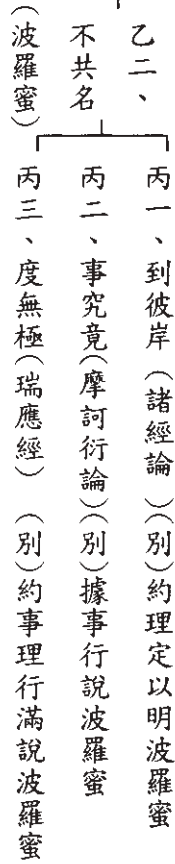 乙二、
不共名
(波羅蜜)
丙一、到彼岸(諸經論)(別)約理定以明波羅蜜
丙二、事究竟(摩訶衍論)(別)據事行說波羅蜜
丙三、度無極(瑞應經)(別)約事理行滿說波羅蜜